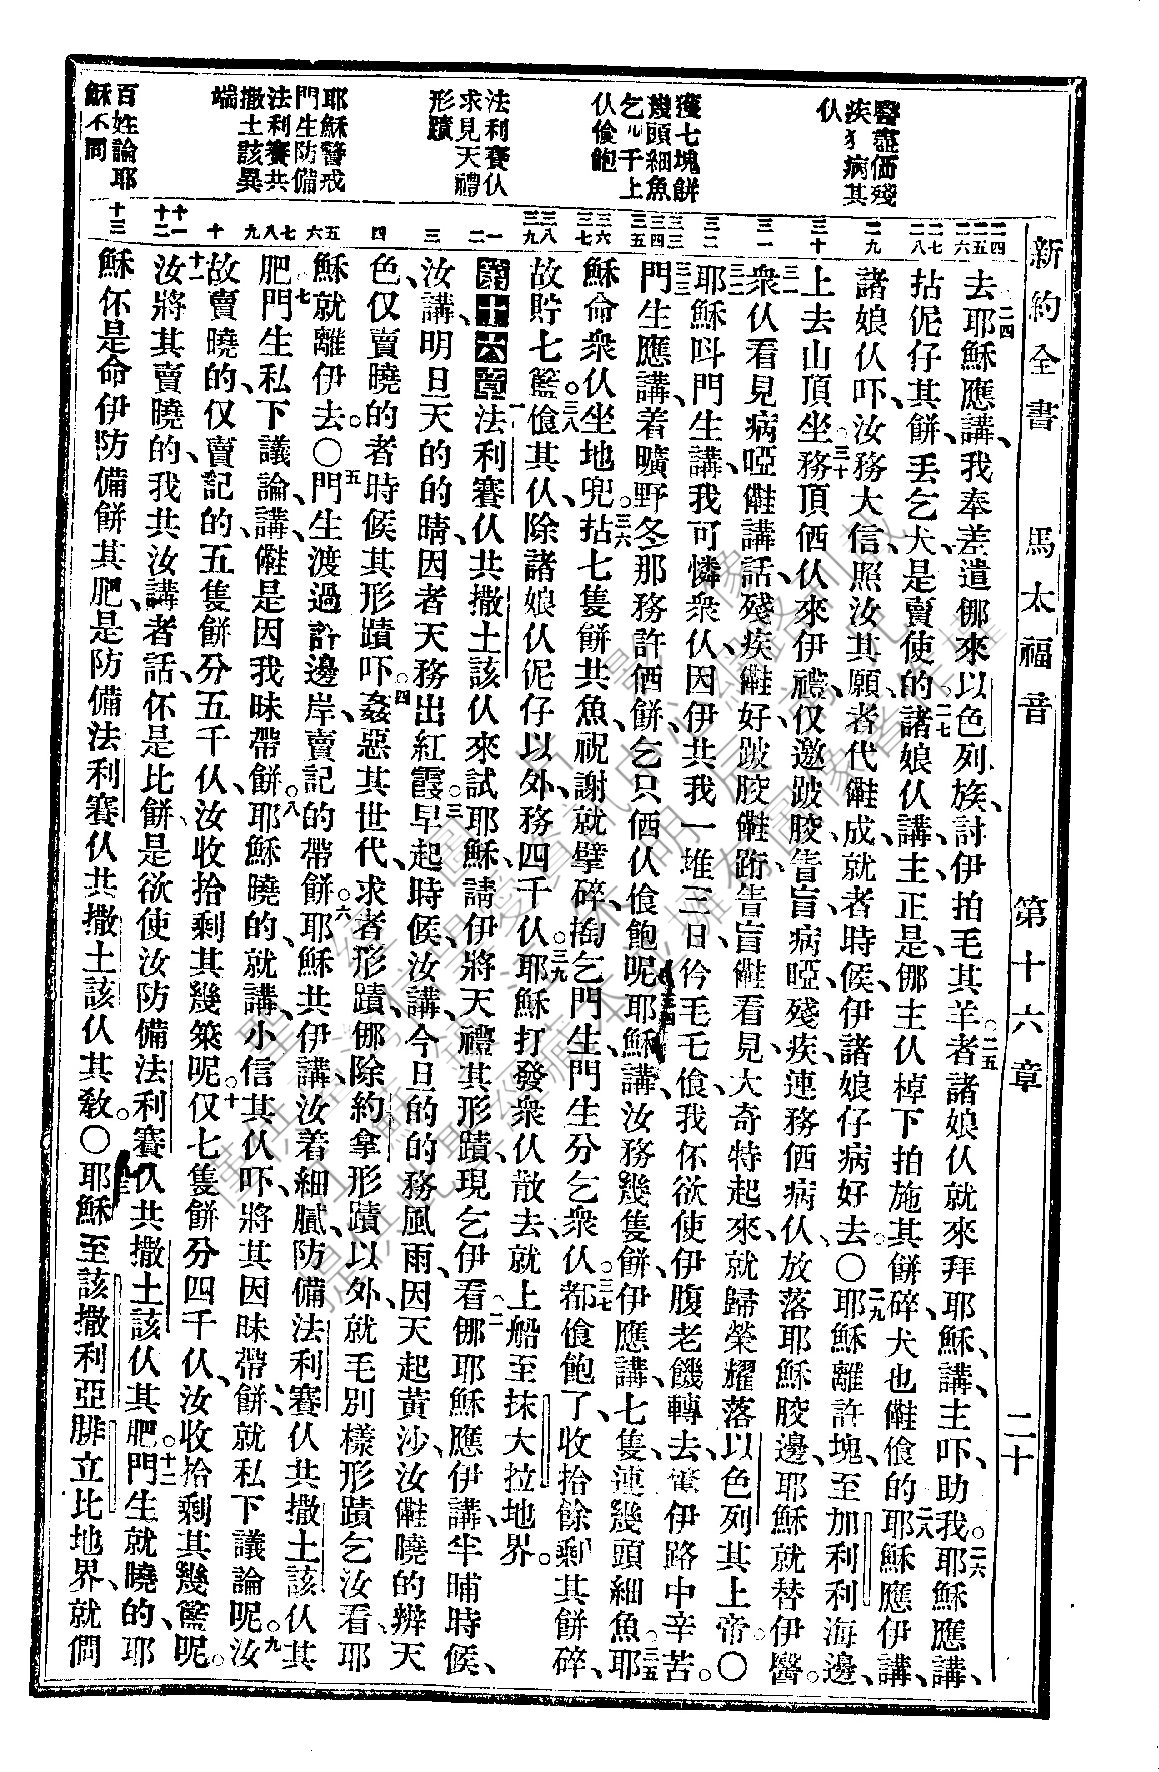 新約全書　馬太福音　第十六章　二十
醫盡𠆧殘
疾𡅏病其
仈
獲七塊餅
幾頭細魚
乞ル千上
仈飡飽
法利賽仈
求見天禮
形蹟
耶穌警戒
門生防備
法利賽共
撒土該異
端
百姓論耶
穌不同
二四 二五 二六 二七 二八 二九 三十 三一 三二 三三 三四 三五 三六 三七 三八 三九 一 二 三 四 五 六 七 八 九 十 十一 十二 十三
去、二四耶穌應講、我奉差遣㑚來以色列族、討伊拍毛其羊、二五者諸娘仈就來拜耶穌、講、主吓、助我。二六耶穌應講、
拈伲仔其餅、丟乞犬、是賣使的。二七諸娘仈講、主正是、㑚主仈棹下拍施其餅碎、犬也㒤飡的。二八耶穌應伊講、
諸娘仈吓、汝務大信、照汝其願、者代㒤成就、者時候、伊諸娘仔病好去。〇二九耶穌離許塊、至加利利海邊、
上去山頂坐。三十務頂𠆧仈來伊禮、仅邀跛胶、眚盲、病啞、殘疾、連務𠆧病仈、放落耶穌胶邊、耶穌就替伊醫。
三一衆仈看見病啞㒤講話、殘疾㒤好、跛胶㒤跡、眚盲㒤看見、大奇特起來、就歸榮耀落以色列其上帝。〇
三二耶穌呌門生講、我可憐衆仈、因伊共我一堆三日、仱毛乇飡、我伓欲使伊腹老饑轉去、驚伊路中辛苦。
三三門生應講、着曠野、冬那務許𠆧餅、乞只𠆧仈飡飽呢。三四耶穌講、汝務幾隻餅、伊應講、七隻、連幾頭細魚。三五耶
穌命衆仈坐地兜。三六拈七隻餅共魚、祝謝就擘碎、掏乞門生、門生分乞衆仈。三七都飡飽了、收拾餘剩其餅碎、
故貯七籃。三八飡其仈、除諸娘仈泥仔以外、務四千仈。三九耶穌打發衆仈散去、就上船至抹大拉地界。
第十六章一法利賽仈共撒土該仈來試耶穌、請伊將天禮其形蹟現乞伊看。二㑚耶穌應伊講、半晡時候、
汝講明旦天的的晴、因者天務出紅霞。三早起時候、汝講今旦的的務風雨、因天起黃沙、汝㒤曉的辨天
色、仅賣曉的者時候其形蹟吓。四姦惡其世代、求者形蹟、㑚除約拿形蹟以外、就毛別樣形蹟乞汝看、耶
穌就離伊去。〇五門生渡過許邊岸、賣記的帶餅。六耶穌共伊講、汝着細膩、防備法利賽仈共撒土該仈其
肥。七門生私下議論、講、㒤是因我昧帶餅。八耶穌曉的、就講、小信其仈吓、將其因昧帶餅、就私下議論呢。九汝
故賣曉的、仅賣記的、五隻餅分五千仈、汝收拾剩其幾䇲呢。十仅七隻餅分四千仈、汝收拾剩其幾籃呢。
十一汝將其賣曉的、我共汝講者話、伓是比餅、是欲使汝防備法利賽仈共撒土該仈其肥。十二門生就曉的、耶
穌伓是命伊防備餅其肥、是防備法利賽仈共撒土該仈其敎。〇十三耶穌至該撒利亞腓立比地界、就問